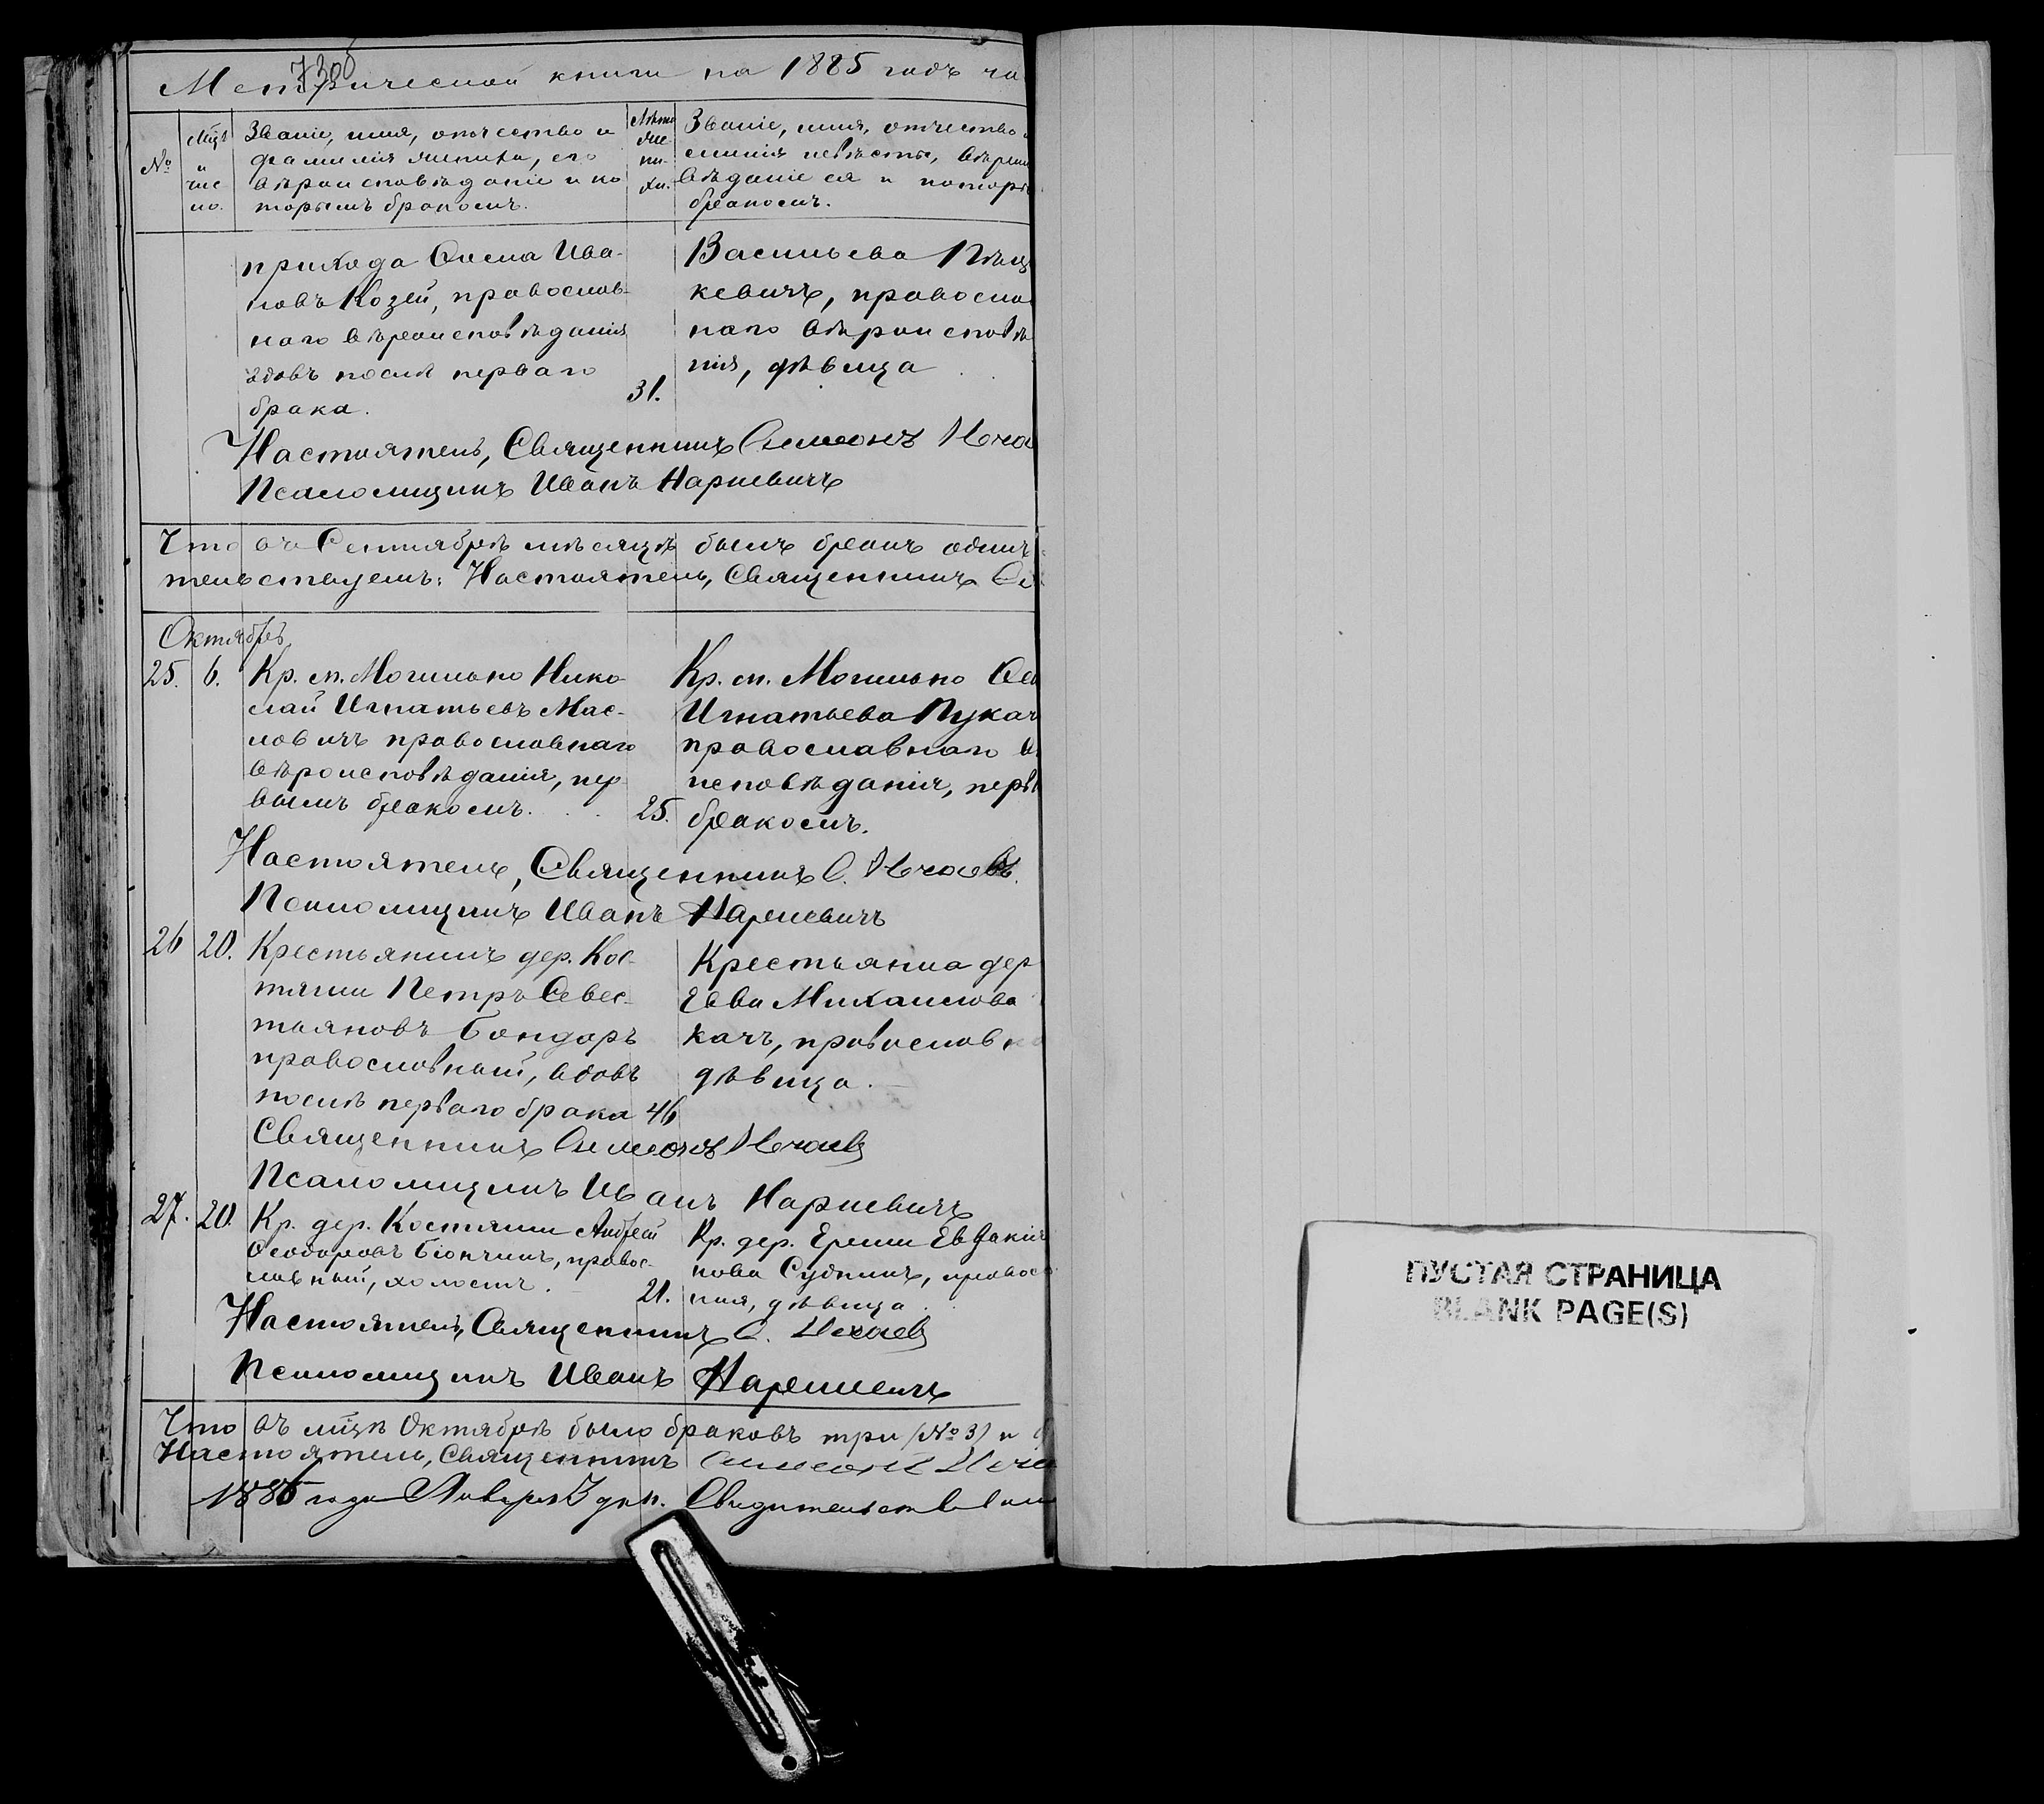 730
Метрической книги на 1885 годъ ча
№
Мцъ
и
чис
ло.
Званіе, имя, отчество и
фамилія жениха, его
вѣроисповѣданіе и ко
торымъ бракомъ.
Лѣта
же
ни-
ха.
Званіе, имя, отчество
милія невѣсты, вѣроис
вѣданіе ея и которы
бракомъ.
прихода Ива-
новъ Козей, православ-
наго вѣроисповѣданія
вдовъ послѣ перваго
брака.
31.
Васильева
кевичъ, правосла
наго вѣроисповѣ
нія, дѣвица
Настоятель, Священникъ Симеонъ Неча
Псаломщикъ Иванъ Наркевичъ
Что въ Сентябрѣ мѣсяцѣ былъ бракъ одинъ
тельствуемъ: Настоятель, Священникъ Си
Октябрь
25. 6. Кр. м. Могильно Нико-
лай Игнатьевъ Мас-
ловичъ православнаго
вѣроисповѣданія, пер
вымъ бракомъ. 25.
Кр. м. Могильно
Игнатьева Лукаш
православнаго в
исповѣданія, перв
бракомъ.
Настоятель, Священникъ С. Нечаевъ.
Псаломщикъ Иванъ Наркевичъ
26 20. Крестьянинъ дер. Кос-
тяши Петръ Севес-
тьяновъ Бондаръ
православный, вдовъ
послѣ перваго брака 46
Крестьянка дер
Евва Михаилова
качъ, православн
дѣвица.
Священникъ Симеонъ Нечаевъ
Псаломщикъ Иванъ Наркевичъ
27. 20. Кр. дер. Костяши Андрей
Ѳеодоровъ, правос-
лавный, холостъ. 21.
Кр. дер. Евдокія
нова Судникъ, правос
ная, дѣвица.
Настоятель, Священникъ С. Нечаевъ
Псаломщикъ Иванъ Наркевичъ
Что въ мцѣ Октябрѣ было браковъ три (№ 3) и
Настоятель, Священникъ Симеонъ Неча
1886 года Января 3 дня. Свидѣтельствовали
ПУСТАЯ СТРАНИЦА
BLANK PAGE(S)